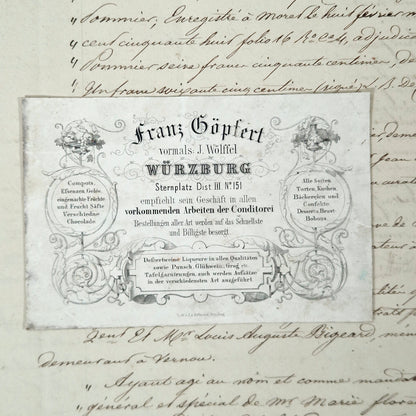 " Pommier, Enregistré à Moret le huit février
" cent cinquante huit folio 16
" Pommier seize francs cinquante centimes,
" Un franc soixante cinq centimes
Franz Göpfert
vormals: J. Wölffel
WÜRZBURG
Sternplatz Dist III. No 151
empfiehlt sein Geschäft in allen
vorkommenden Arbeiten der Conditorei
Bestellungen aller Art werden auf das Schnellste
und Billigste besorgt.
Compots
Essenzen Gelée,
eingemachte Früchte
und Frucht Säfte
Verschiedne
Chocolade
Alle Sorten
Torten, Kuchen
Bäckereien und
Confekte
Dessert u. Brust-
Bobons.
Desfortweine Liqueure in allen Qualitäten
sowie Punsch, Glühwein, Grog, etc.
Tafelgarnirungen, auch werden Aufsätze
in der verschiedensten Art ausgeführt
gent Et Mr. Louis Auguste Bigeard,
demeurant à Vernou.
" Ayant agi au nom et comme
" général et spécial de Mme Marie